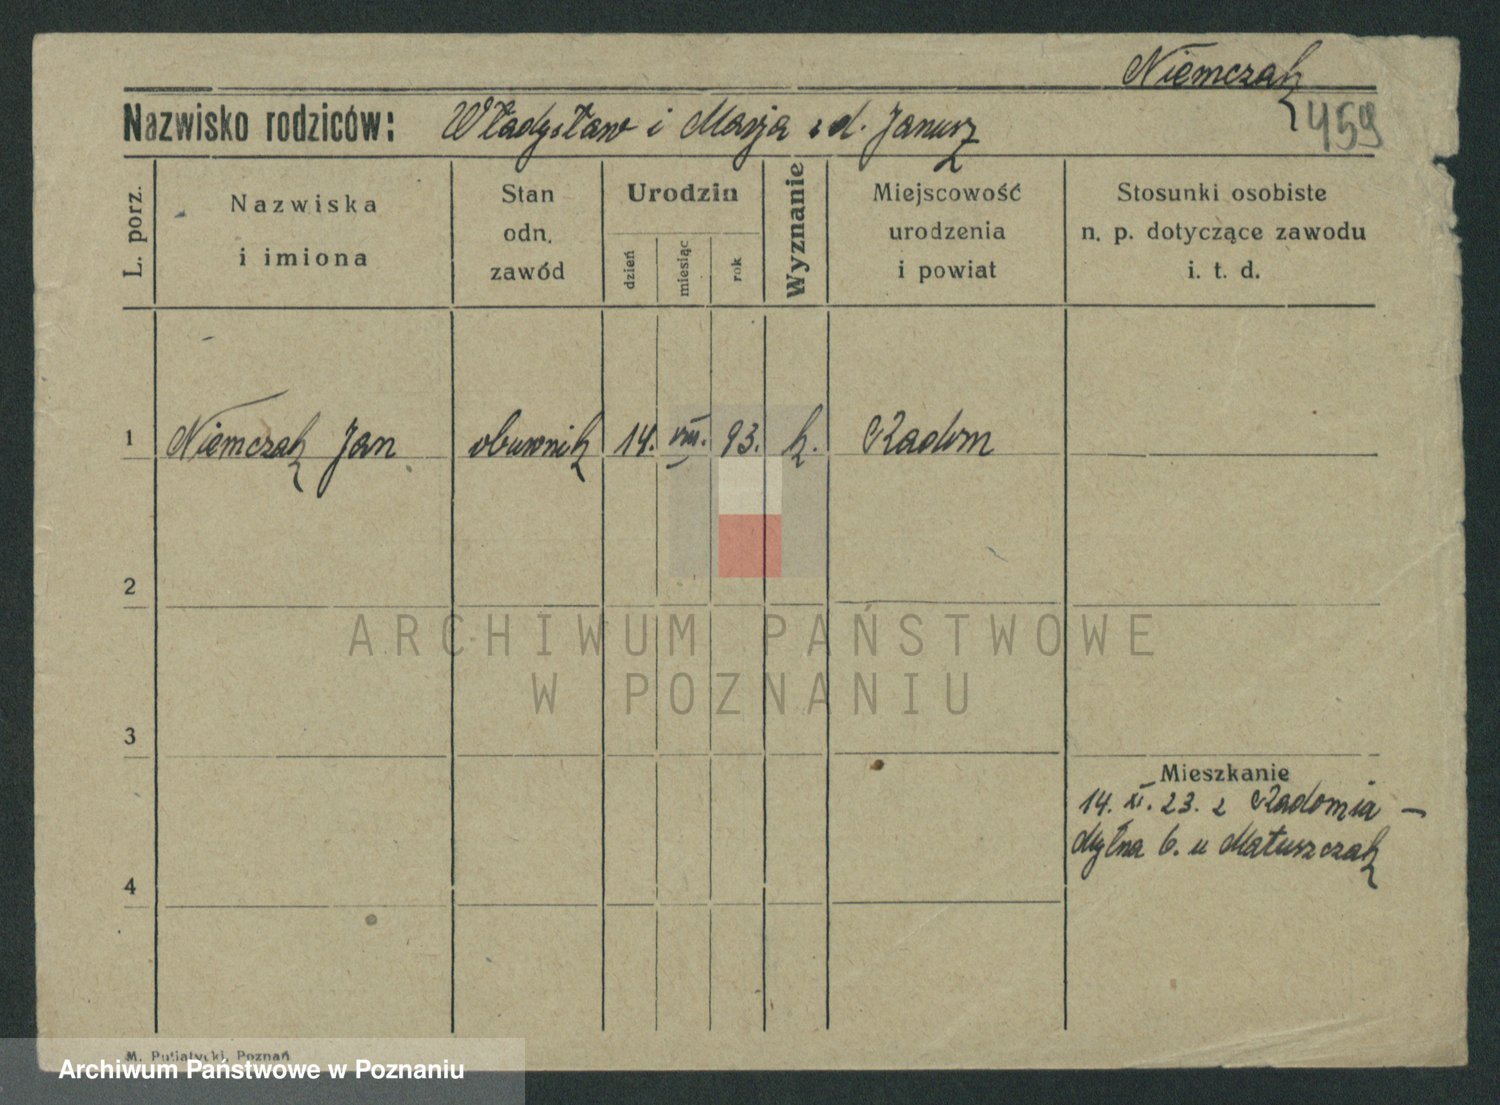 Niemczak
459
Nazwisko rodziców: Władysław i Marja z d. Janusz
L. porz.
Nazwiska
i imiona
Stan
odn.
zawód
Urodzin
dzień
miesiąc
rok
Wyznanie
Miejscowość
urodzenia
i powiat
Stosunki osobiste
n. p. dotyczące zawodu
i. t. d.
1 Niemczak Jan obuwnik 14. VIII. 93. k. Radom
2
ARCHIWUM PAŃSTWOWE
W POZNANIU
3
Mieszkanie
14. XI. 23. z Radomia –
Młyna 6. u Matuszczak
4
M. Putiatycki, Poznań
Archiwum Państwowe w Poznaniu